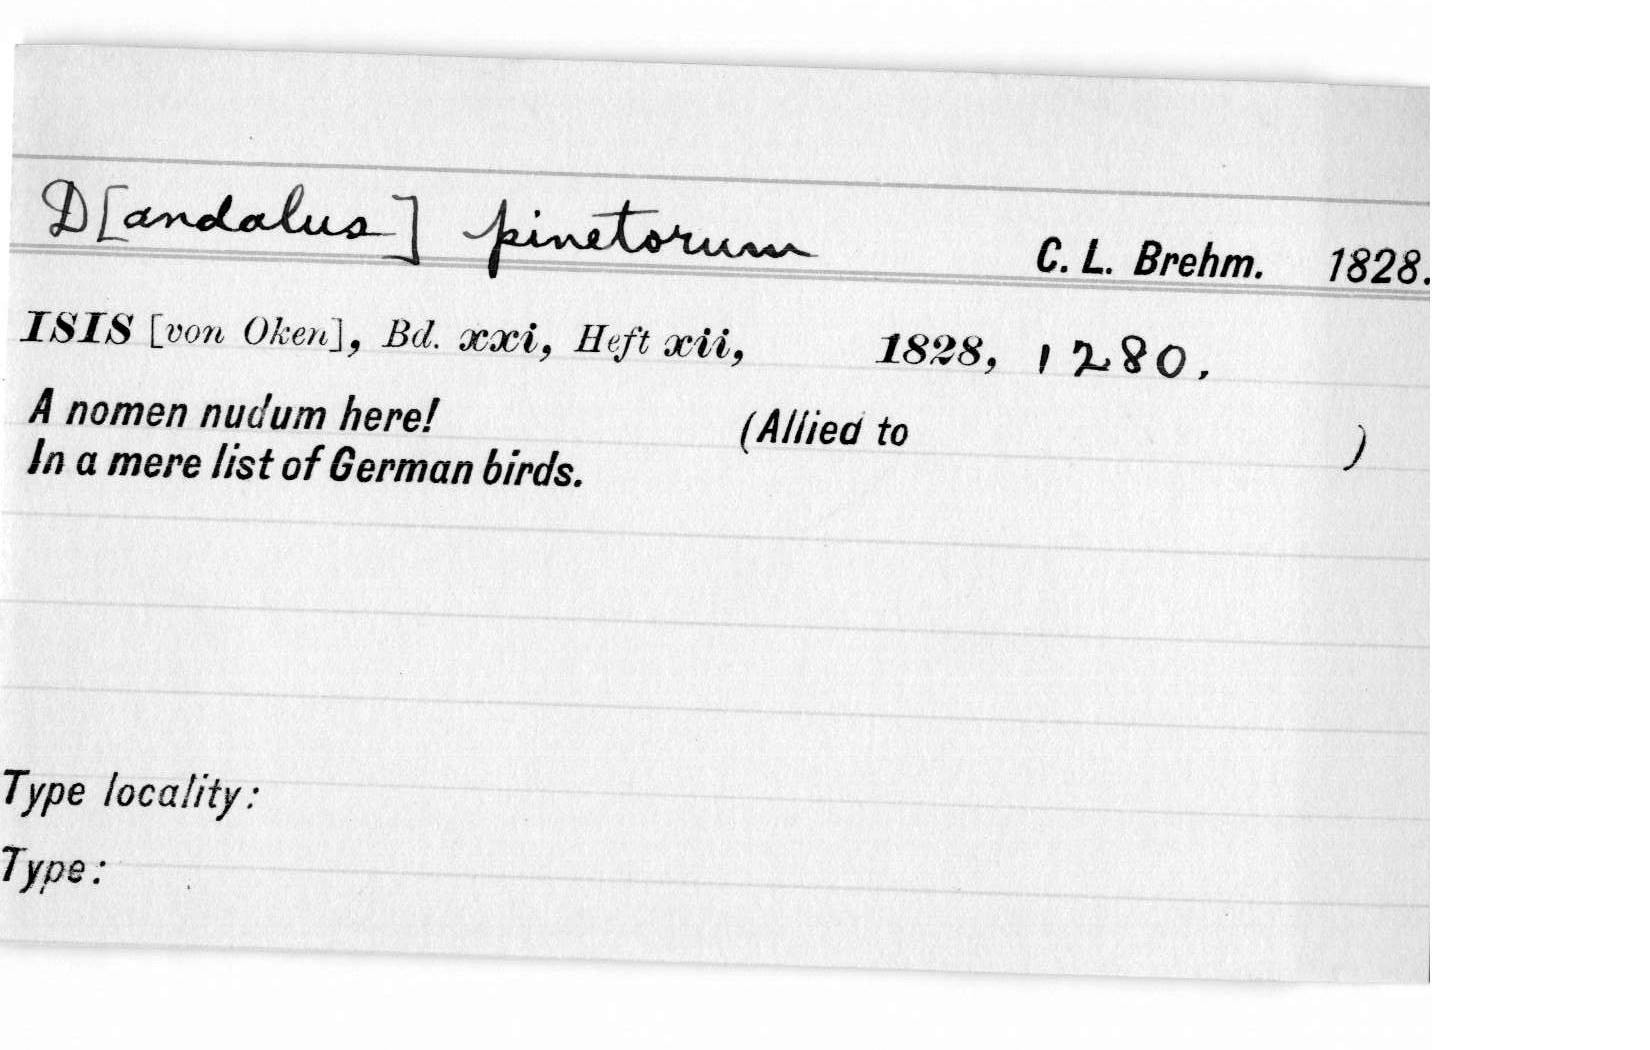 D[andalus] pinetorum C. L. Brehm. 1828.
ISIS [von Oken], Bd. xxi, Heft xii, 1828, 1280.
A nomen nudum here! (Allied to )
In a mere list of German birds.
Type locality:
Type: